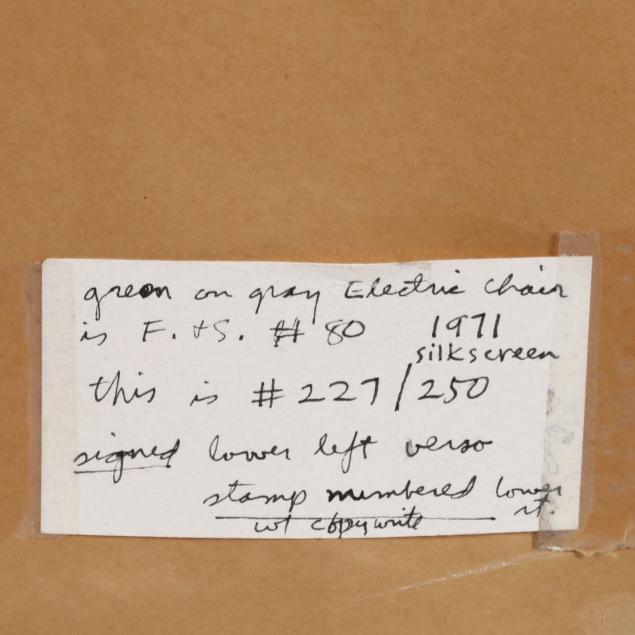 green on gray Electric Chair
is F. + S. # 80 1971
silkscreen
this is # 227/250
signed lower left verso
stamp numbered lower rt.
wt copywrite